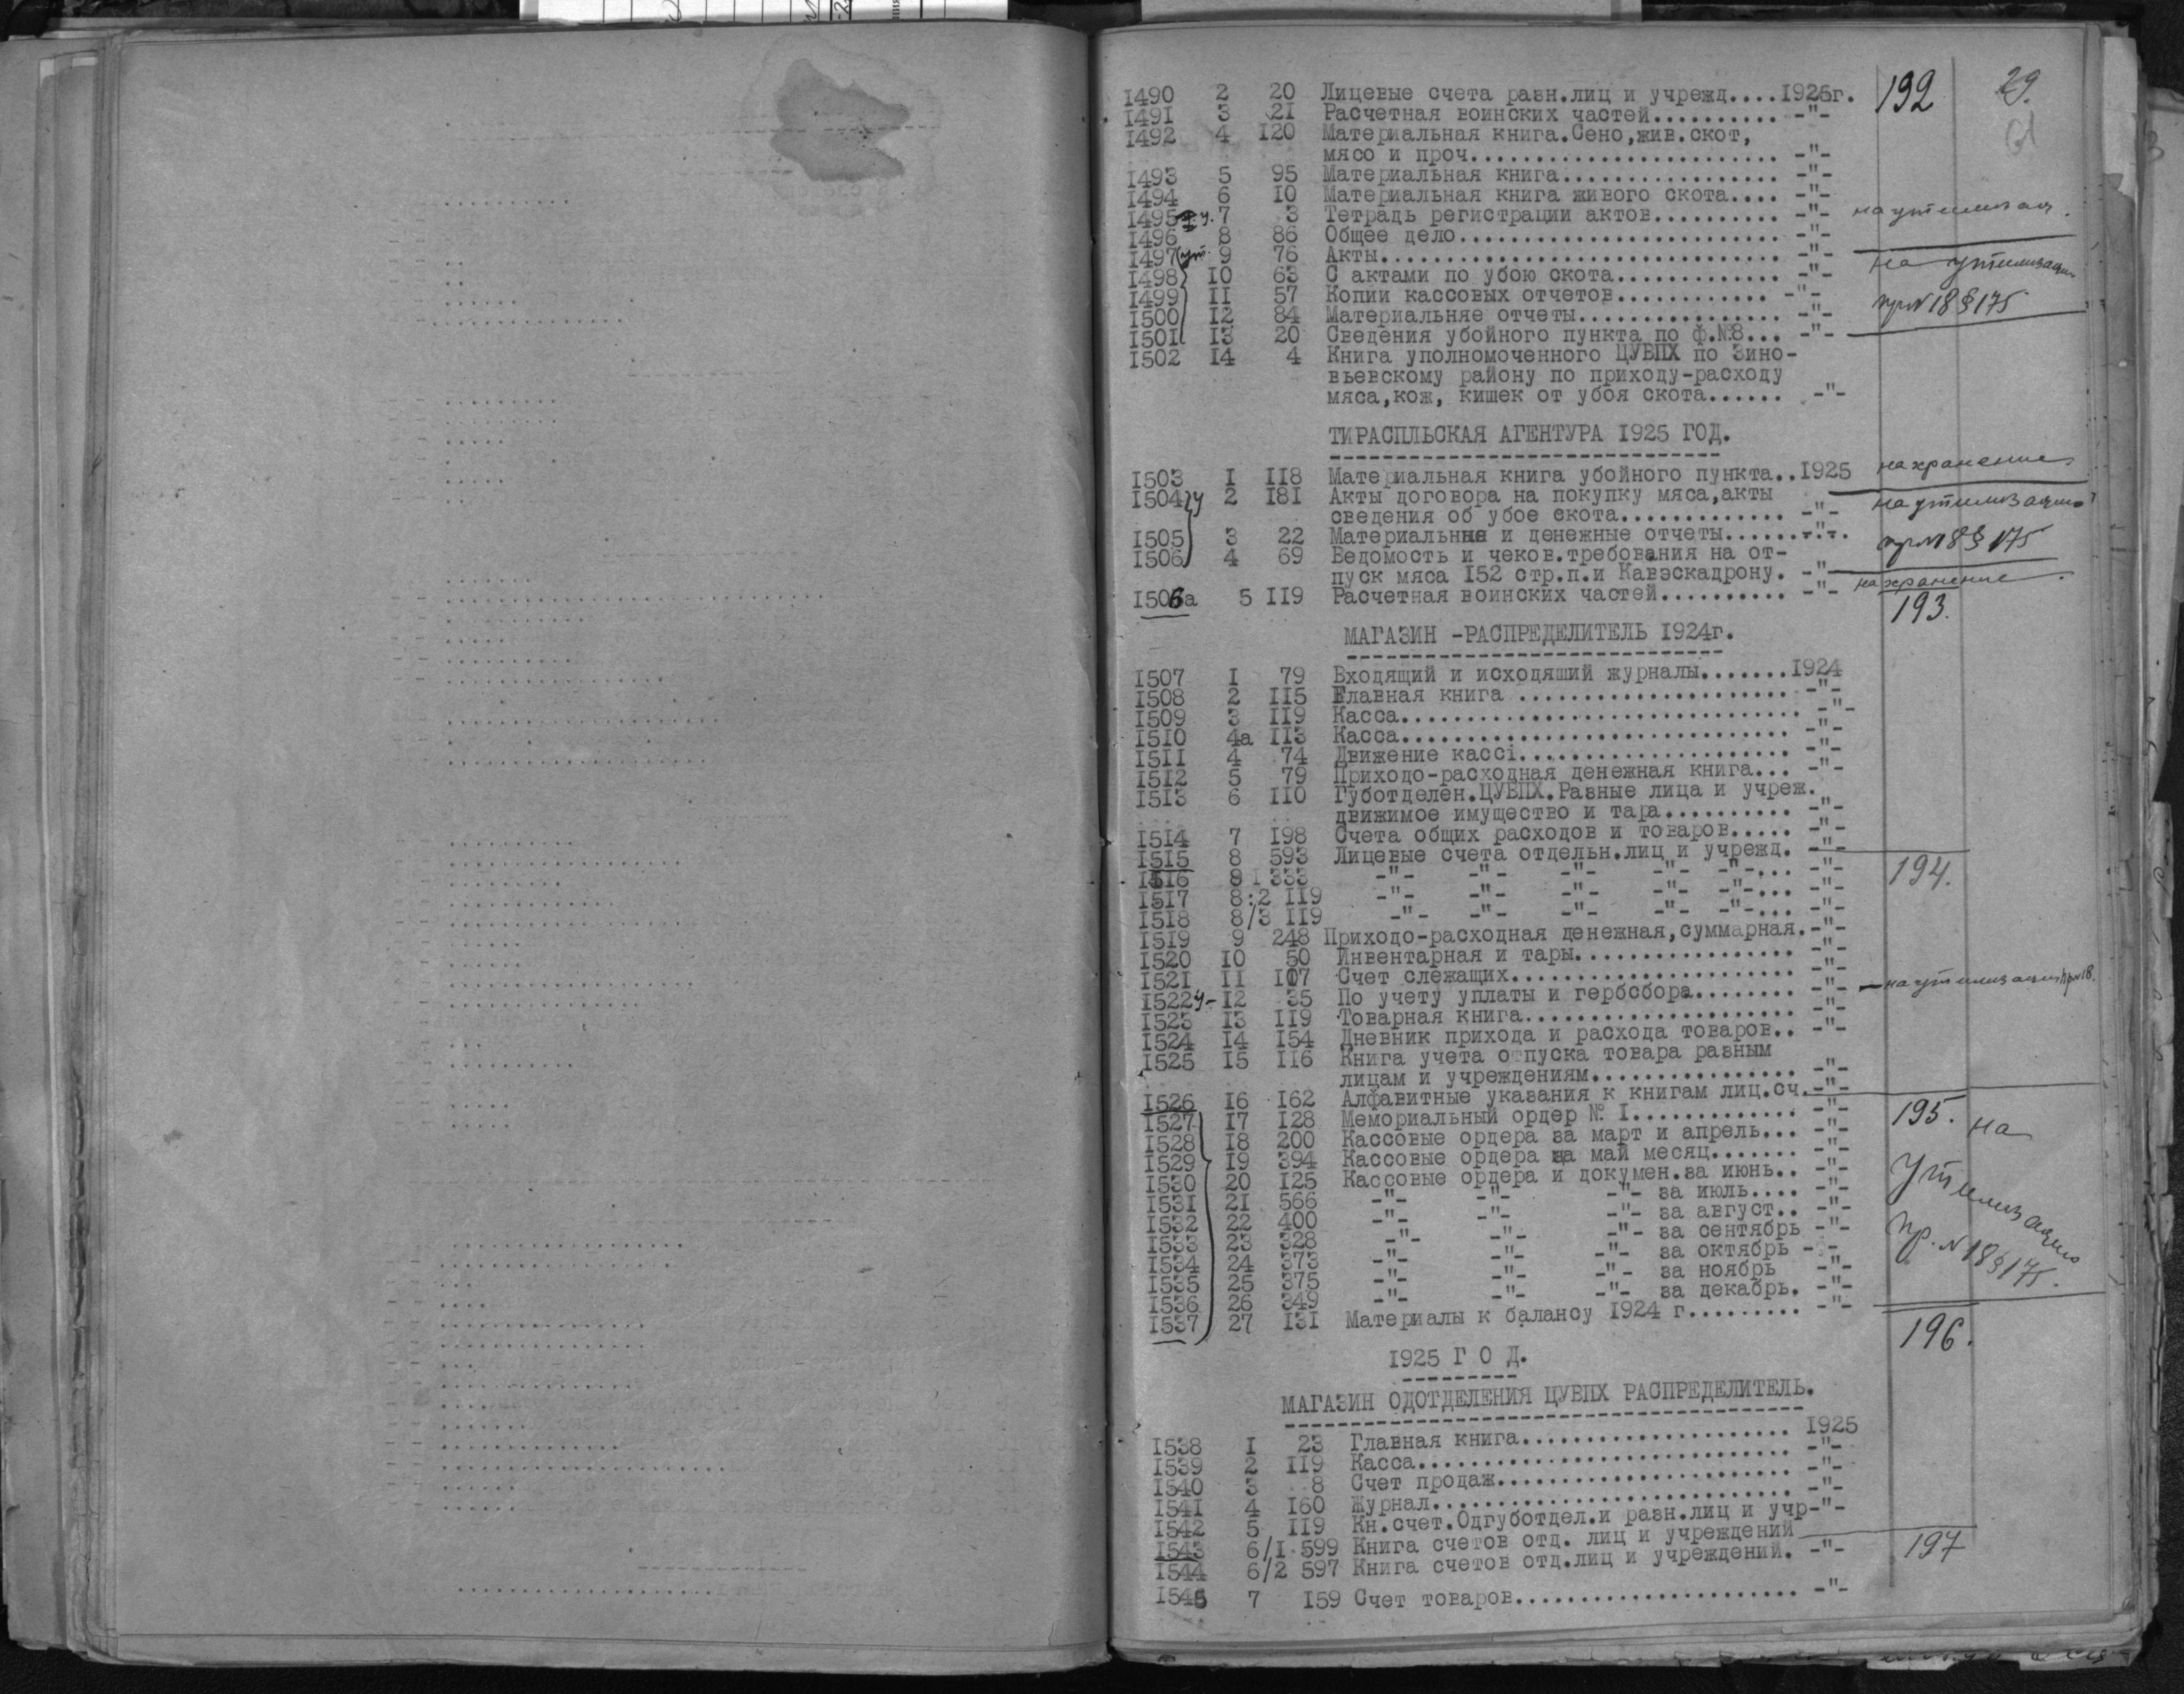 29.
1490 2 20 Лицевые счета разн.лиц и учрежд....1925г. 192
1491 3 21 Расчетная воинских частей.......... -"-
1492 4 120 Материальная книга.Сено,жив.скот,
мясо и проч........................ -"-
1493 5 95 Материальная книга................. -"-
1494 6 10 Материальная книга живого скота.... -"-
1495 7 3 Тетрадь регистрации актов.......... -"-
1496 8 86 Общее дело......................... -"-
1497 ут. 9 76 Акты............................... -"- на утилизацию
1498 10 63 С актами по убою скота............. -"-
1499 11 57 Копии кассовых отчетов............ -"- пр N 18 § 175
1500 12 84 Материальняе отчеты................ -"-
1501 13 20 Сведения убойного пункта по ф.№8... -"-
1502 14 4 Книга уполномоченного ЦУВПХ по Зино-
вьевскому району по приходу-расходу
мяса,кож, кишек от убоя скота...... -"-
ТИРАСПЛЬСКАЯ АГЕНТУРА 1925 ГОД.
1503 1 118 Материальная книга убойного пункта..1925 на хранение
1504 у 2 181 Акты договора на покупку мяса,акты на утилизацию
сведения об убое скота............. -"-
1505 3 22 Материальные и денежные отчеты......-"-. пр N 18 § 175
1506 4 69 Ведомость и чеков.требования на от-
пуск мяса 152 стр.п.и Кавэскадрону. -"-
1506а 5 119 Расчетная воинских частей.......... -"- на хранение.
193.
МАГАЗИН -РАСПРЕДЕЛИТЕЛЬ 1924г.
1507 1 79 Входящий и исходяший журналы.......1924
1508 2 115 Главная книга ..................... -"-
1509 3 119 Касса............................... -"-
1510 4а 113 Касса.............................. -"-
1511 4 74 Движение кассі..................... -"-
1512 5 79 Приходо-расходная денежная книга... -"-
1513 6 110 Губотделен.ЦУВПХ.Разные лица и учреж.
движимое имущество и тара.......... -"-
1514 7 198 Счета общих расходов и товаров..... -"-
1515 8 593 Лицевые счета отдельн.лиц и учрежд. -"-
1516 8 1 333 -"- -"- -"- -"- -"-... -"- 194.
1517 8:2 119 -"- -"- -"- -"- -"-... -"-
1518 8/3 119 -"- -"- -"- -"- -"-... -"-
1519 9 248 Приходо-расходная денежная,суммарная.-"-
1520 10 50 Инвентарная и тары................. -"-
1521 11 107 Счет слежащих...................... -"-
1522 у- 12 35 По учету уплаты и гербсбора........ -"- - на утилизацию пр N 18.
1523 13 119 Товарная книга..................... -"-
1524 14 154 Дневник прихода и расхода товаров.. -"-
1525 15 116 Книга учета отпуска товара разным
лицам и учреждениям................ -"-
1526 16 162 Алфавитные указания к книгам лиц.сч.-"-
1527 17 128 Мемориальный ордер № 1............. -"- 195. на
1528 18 200 Кассовые ордера за март и апрель... -"-
1529 19 394 Кассовые ордера за май месяц....... -"-
1530 20 125 Кассовые ордера и докумен.за июнь.. -"- утилизацию
1531 21 566 -"- -"- -"- за июль.... -"-
1532 22 400 -"- -"- -"- за август.. -"-
1533 23 328 -"- -"- -"- за сентябрь -"- пр. N 18 § 175.
1534 24 373 -"- -"- -"- за октябрь -"-
1535 25 375 -"- -"- -"- за ноябрь -"-
1536 26 349 -"- -"- -"- за декабрь. -"-
1537 27 131 Материалы к балансу 1924 г......... -"-
196.
1925 Г О Д.
МАГАЗИН ОДОТДЕЛЕНИЯ ЦУВПХ РАСПРЕДЕЛИТЕЛЬ.
1538 1 23 Главная книга..................... 1925
1539 2 119 Касса............................. -"-
1540 3 8 Счет продаж....................... -"-
1541 4 160 Журнал............................ -"-
1542 5 119 Кн.счет.Одгуботдел.и разн.лиц и учр-"-
1543 6/1 599 Книга счетов отд. лиц и учреждений
1544 6/2 597 Книга счетов отд.лиц и учреждений. -"- 197
1545 7 159 Счет товаров...................... -"-